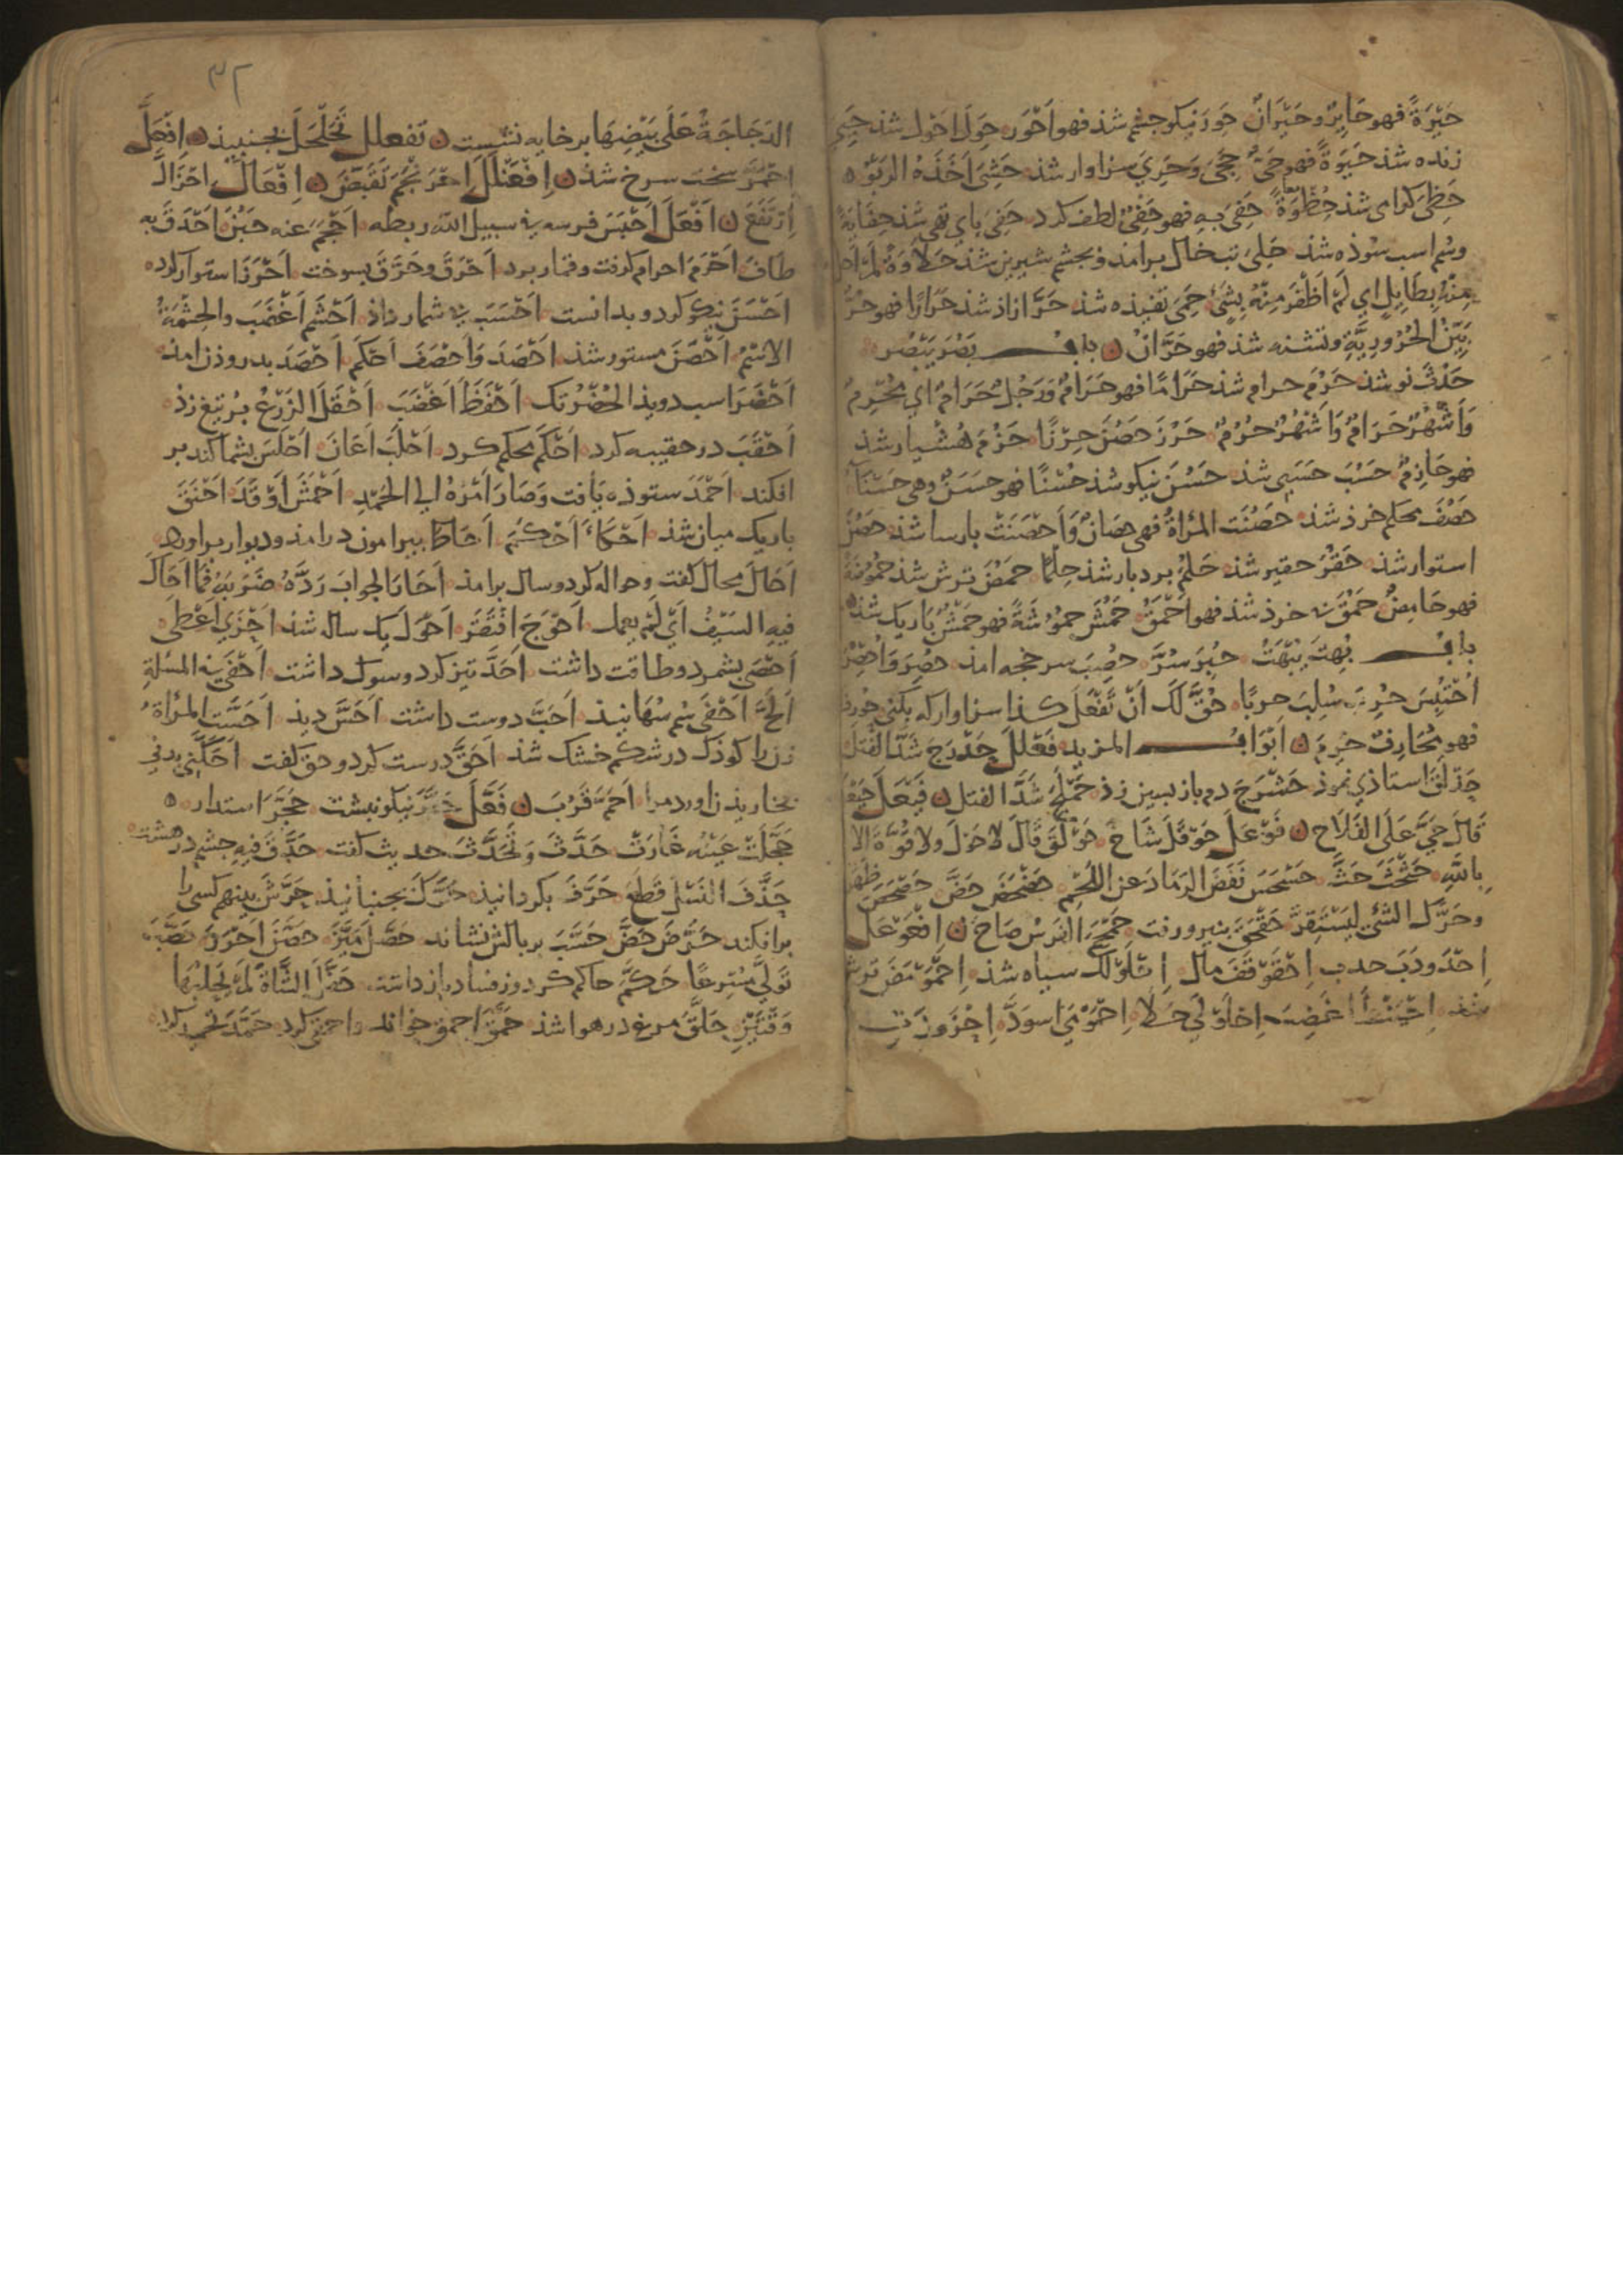 حَيْرَةً فهو حَايِرٌ وحَيْرَانُ حَوِرَ نيكو جشم شذ فهو اَحْوَر حَوِلَ اَحْوَل شذ حَيِيَ
زنده شذ حَيٰوةً فهو حَيٌّ حَجِىَ وَحَرِيَ سزاوار شذ حَشِىَ اَخَذَهُ الرَبْوُ
حَظِىَ كرامى شذ حُظْوَةً حَفِىَ بِهِ فهو حَفِىٌّ لطف كرد حَفِىَ باى تهى شذ حِفَايَةً
وسُم اسب سوذه شذ حَلِىَ تب خال برامذ وبجشم شيرين شذ حَلَاوَةً لَمْ اَحْلَ
مِنْهُ بِطَايِلٍ اي لَمْ اَظْفَرْ مِنْهُ بِشَيْءٍ حَمِىَ تفيذه شذ حَرَّ ازاذ شذ حَرَارًا فهو حُرٌّ
بَيِّنُ الْحُرُورِيَّةِ وتشنه شذ فهو حَرَّانُ باب بَصُرَ يَبْصُرُ
حَدُثَ نو شذ حَرُمَ حرام شذ حَرَامًا فهو حَرَامٌ وَرَجُلٌ حَرَامٌ اي مُحْرِمٌ
وَاَشْهُرٌ حَرَامٌ وَاَشْهُرٌ حُرُمٌ حَرُزَ حَصُنَ حِرْزًا حَزُمَ هُشْيار شذ
فهو حَازِمٌ حَسُبَ حَسَبى شذ حَسُنَ نيكو شذ حُسْنًا فهو حَسَنٌ وهى حَسْنَآءُ
حَصُفَ محكم خرذ شذ حَصُنَت المَرْاةُ فهى حَصَانٌ وَاَحْصَنَتْ بارسا شذ حَصُنَ
استوار شذ حَقُرَ حقير شذ حَلُمَ بردبار شذ حِلْمًا حَمُضَ ترش شذ حُمُوضَةً
فهو حَامِضٌ حَمُقَ خرذ شذ فهو اَحْمَقُ حَمُشَ حُمُوشَةً فهو حَمْشٌ باريك شذ
باب بُهِتَ يُبْهَتُ حُبِرَ سُرَّ حُصِبَ سرخجه امذ حُصِرَ وَاُحْصِرَ
اُحْتُبِسَ حُرِبَ سُلِبَ حُقَّ لَكَ اَنْ تَفْعَلَ كذا سزاوار كه بكنى حُورِفَ
فهو مُحَارَفٌ حُرِمَ اَبْوَاب المزيد فَعْلَلَ حَدْرَجَ شَدَّ الفَتْلَ
حَذْلَقَ استاذي نموذ حَشْرَجَ دم باز بسين زذ حَمْلَجَ شَدَّ الفتل فَيْعَلَ حَيْعَلَ
قَالَ حَيَّ عَلَى الفَلَاحِ فَوْعَلَ حَوْقَلَ شَاخَ حَوْلَقَ قَالَ لا حَوْلَ ولا قُوَّةَ الا
بِاللهِ حَثْحَثَ حَثَّ حَسْحَسَ نَفَضَ الرَمَادَ عن اللَّحْمِ حَضْحَضَ حَضَّ حَصْحَصَ ظَهَرَ
وحَرَّكَ الشَّئَ لِيَسْتَقِرَّ حَقْحَقَ بنيرو رفت حَمْحَمَ الفَرَسُ صَاحَ اِفْعَوْعَلَ
اِحْدَوْدَبَ حدب اِحْقَوْقَفَ مال اِحْلَوْلَكَ سياه شذ اِحْمَوْمَضَ ترش
شذ اِحْبَنْطَأَ اغضب اِحْلَوْلَى حَلَا اِحْمَوْمَى اسودّ
٣٢
الدَجَاجَةُ عَلَى بَيْضِهَا بر خايه نشست تَفَعْلَلَ تَحَلْحَلَ بجنبيذ اِفْعَلَّ
اِحْمَرَّ سخت سرخ شذ اِفْعَنْلَلَ تَقَبَّضَ اِفْعَالَّ اِحْزَالَّ
اِرْتَفَعَ اَفْعَلَ اَحْبَسَ فرسه في سبيل الله ربطه اَحْجَمَ عنه جَبُنَ اَحْدَقَ بِه
طَافَ اَحْرَمَ احرام كرفت وقمار برد اَحْرَقَ وحَرَّقَ بسوخت اَحْرَزَ استوار كرد
اَحْسَنَ نيكو كرد وبدانست اَحْسَبَ شمار داذ اَحْشَمَ اَغْضَبَ والحِشْمَةُ
الاسْمُ اَحْصَنَ مستور شذ اَحْصَدَ وَاَحْصَفَ اَحْكَمَ اَحْصَدَ بدروذن امذ
اَحْضَرَ اسب دويذ الحُضْرُ تك اَحْفَظَ اَغْضَبَ اَحْقَلَ الزَّرْعُ برتيغ زذ
اَحْقَبَ در حقيبه كرد اَحْكَمَ محكم كرد اَحْلَبَ اَعَانَ اَحْلَسَ بشماكند بر
افكند اَحْمَدَ ستوذه يافت وَصَارَ اَمْرُهُ الي الحَمْدِ اَحْمَشَ اَوْقَدَ اَحْنَقَ
باريك ميان شذ اَحْكَاَ اَحْكَمَ اَحَاطَ بيرامون درامذ وديوار براورد
اَحَالَ محال كفت وحواله كرد وسال برامذ اَحَارَ الجوابَ رَدَّهُ ضَرَبَهُ فَمَا اَحَالَ
فِيهِ السَيْفُ اَيْ لَمْ يعمل اَحْوَجَ افْتَقَرَ اَحْوَلَ يك ساله شذ اَحْزَي اَعْطَى
اَحْصَى بشمرد وطاقت داشت اَحَدَّ تيز كرد وسوك داشت اَحْفَى في المسئلةِ
اَلَحَّ اَحْفَى سُم سُهانيذ اَحَبَّ دوست داشت اَحَسَّ ديذ اَحَشَّتِ المرْاَةُ
زن را كوذك در شكم خشك شذ اَحَقَّ درست كرد وحق كفت اَحَكَّنِي بدنى
بخاريذن اورد مرا اَحَمَّ قَرُبَ فَعَّلَ حَبَّرَ نيكو نبشت حَجَّرَ استدار
حَجَّلَتْ عَيْنُه غَارَتْ حَدَّثَ وَتَحَدَّثَ حديث كفت حَدَّقَ فِيهِ جشم درهشت
حَذَّفَ قَطَعَ حَرَّفَ بكردانيذ حَرَّكَ بجنبانيذ حَرَّشَ بينهم كسى را
برافكند حَرَّضَ حَضَّ حَسَّبَ بر بالش نشاند حَصَّلَ مَيَّزَ حَصَّنَ اَحْرَزَ حَصَّبَ
تَوَلَّي مُسْرِعًا حَكَّمَ حاكم كرد وز فساد باز داشت حَفَّلَ الشَّاةَ لَمْ يَحْلِبْهَا
وَقَتَّرَ حَلَّقَ مرغ در هوا شذ حَمَّقَ احمق خواند واحمق كرد حَمَّدَ